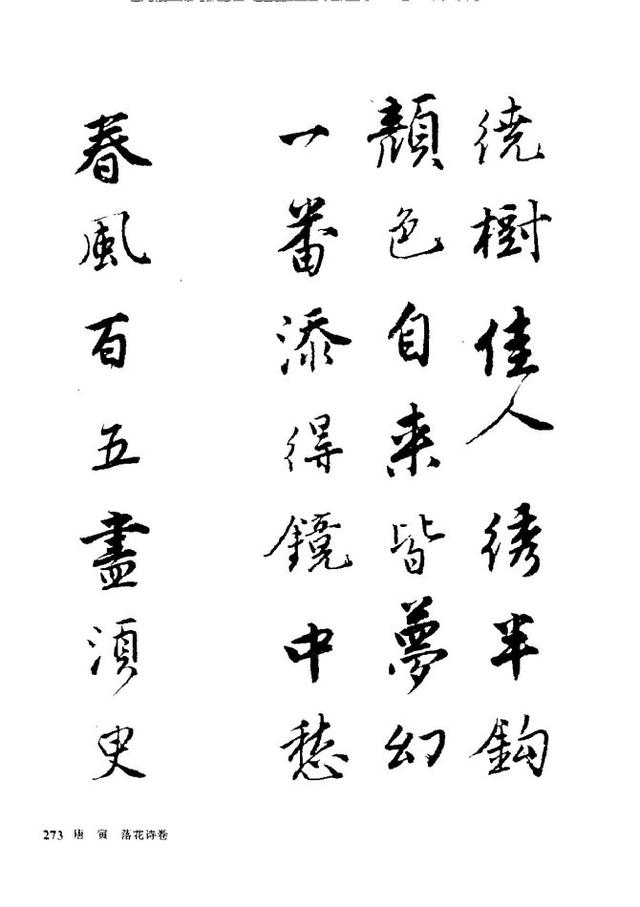 繞樹佳人綉半鈎
顏色自來皆夢幻
一番添得鏡中愁
春風百五盡須臾
273 唐 寅 落花诗卷